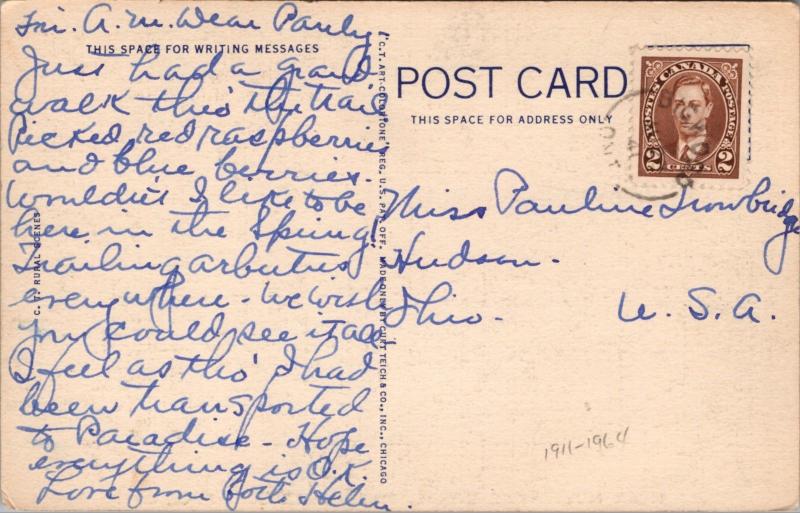 Fri. A.M. Dear Pauly,
THIS SPACE FOR WRITING MESSAGES
Just had a grand
walk thro' the trail
Picked red raspberries
and blue berries.
Wouldn't I like to be
here in the Spring!
Trailing arbutus
everywhere. We wish
you could see it all!
I feel as tho' I had
been transported
to Paradise - Hope
everything is O.K.
Love from Helen.
C. T. RURAL SCENES
"C.T. ART-COLORTONE" REG. U.S. PAT. OFF. MADE ONLY BY CURT TEICH & CO., INC., CHICAGO
POST CARD
THIS SPACE FOR ADDRESS ONLY
POSTES CANADA POSTAGE
2 CENTS 2
ONT
Miss Pauline Trowbridge
Hudson.
Ohio. U. S. A.
1911-1964